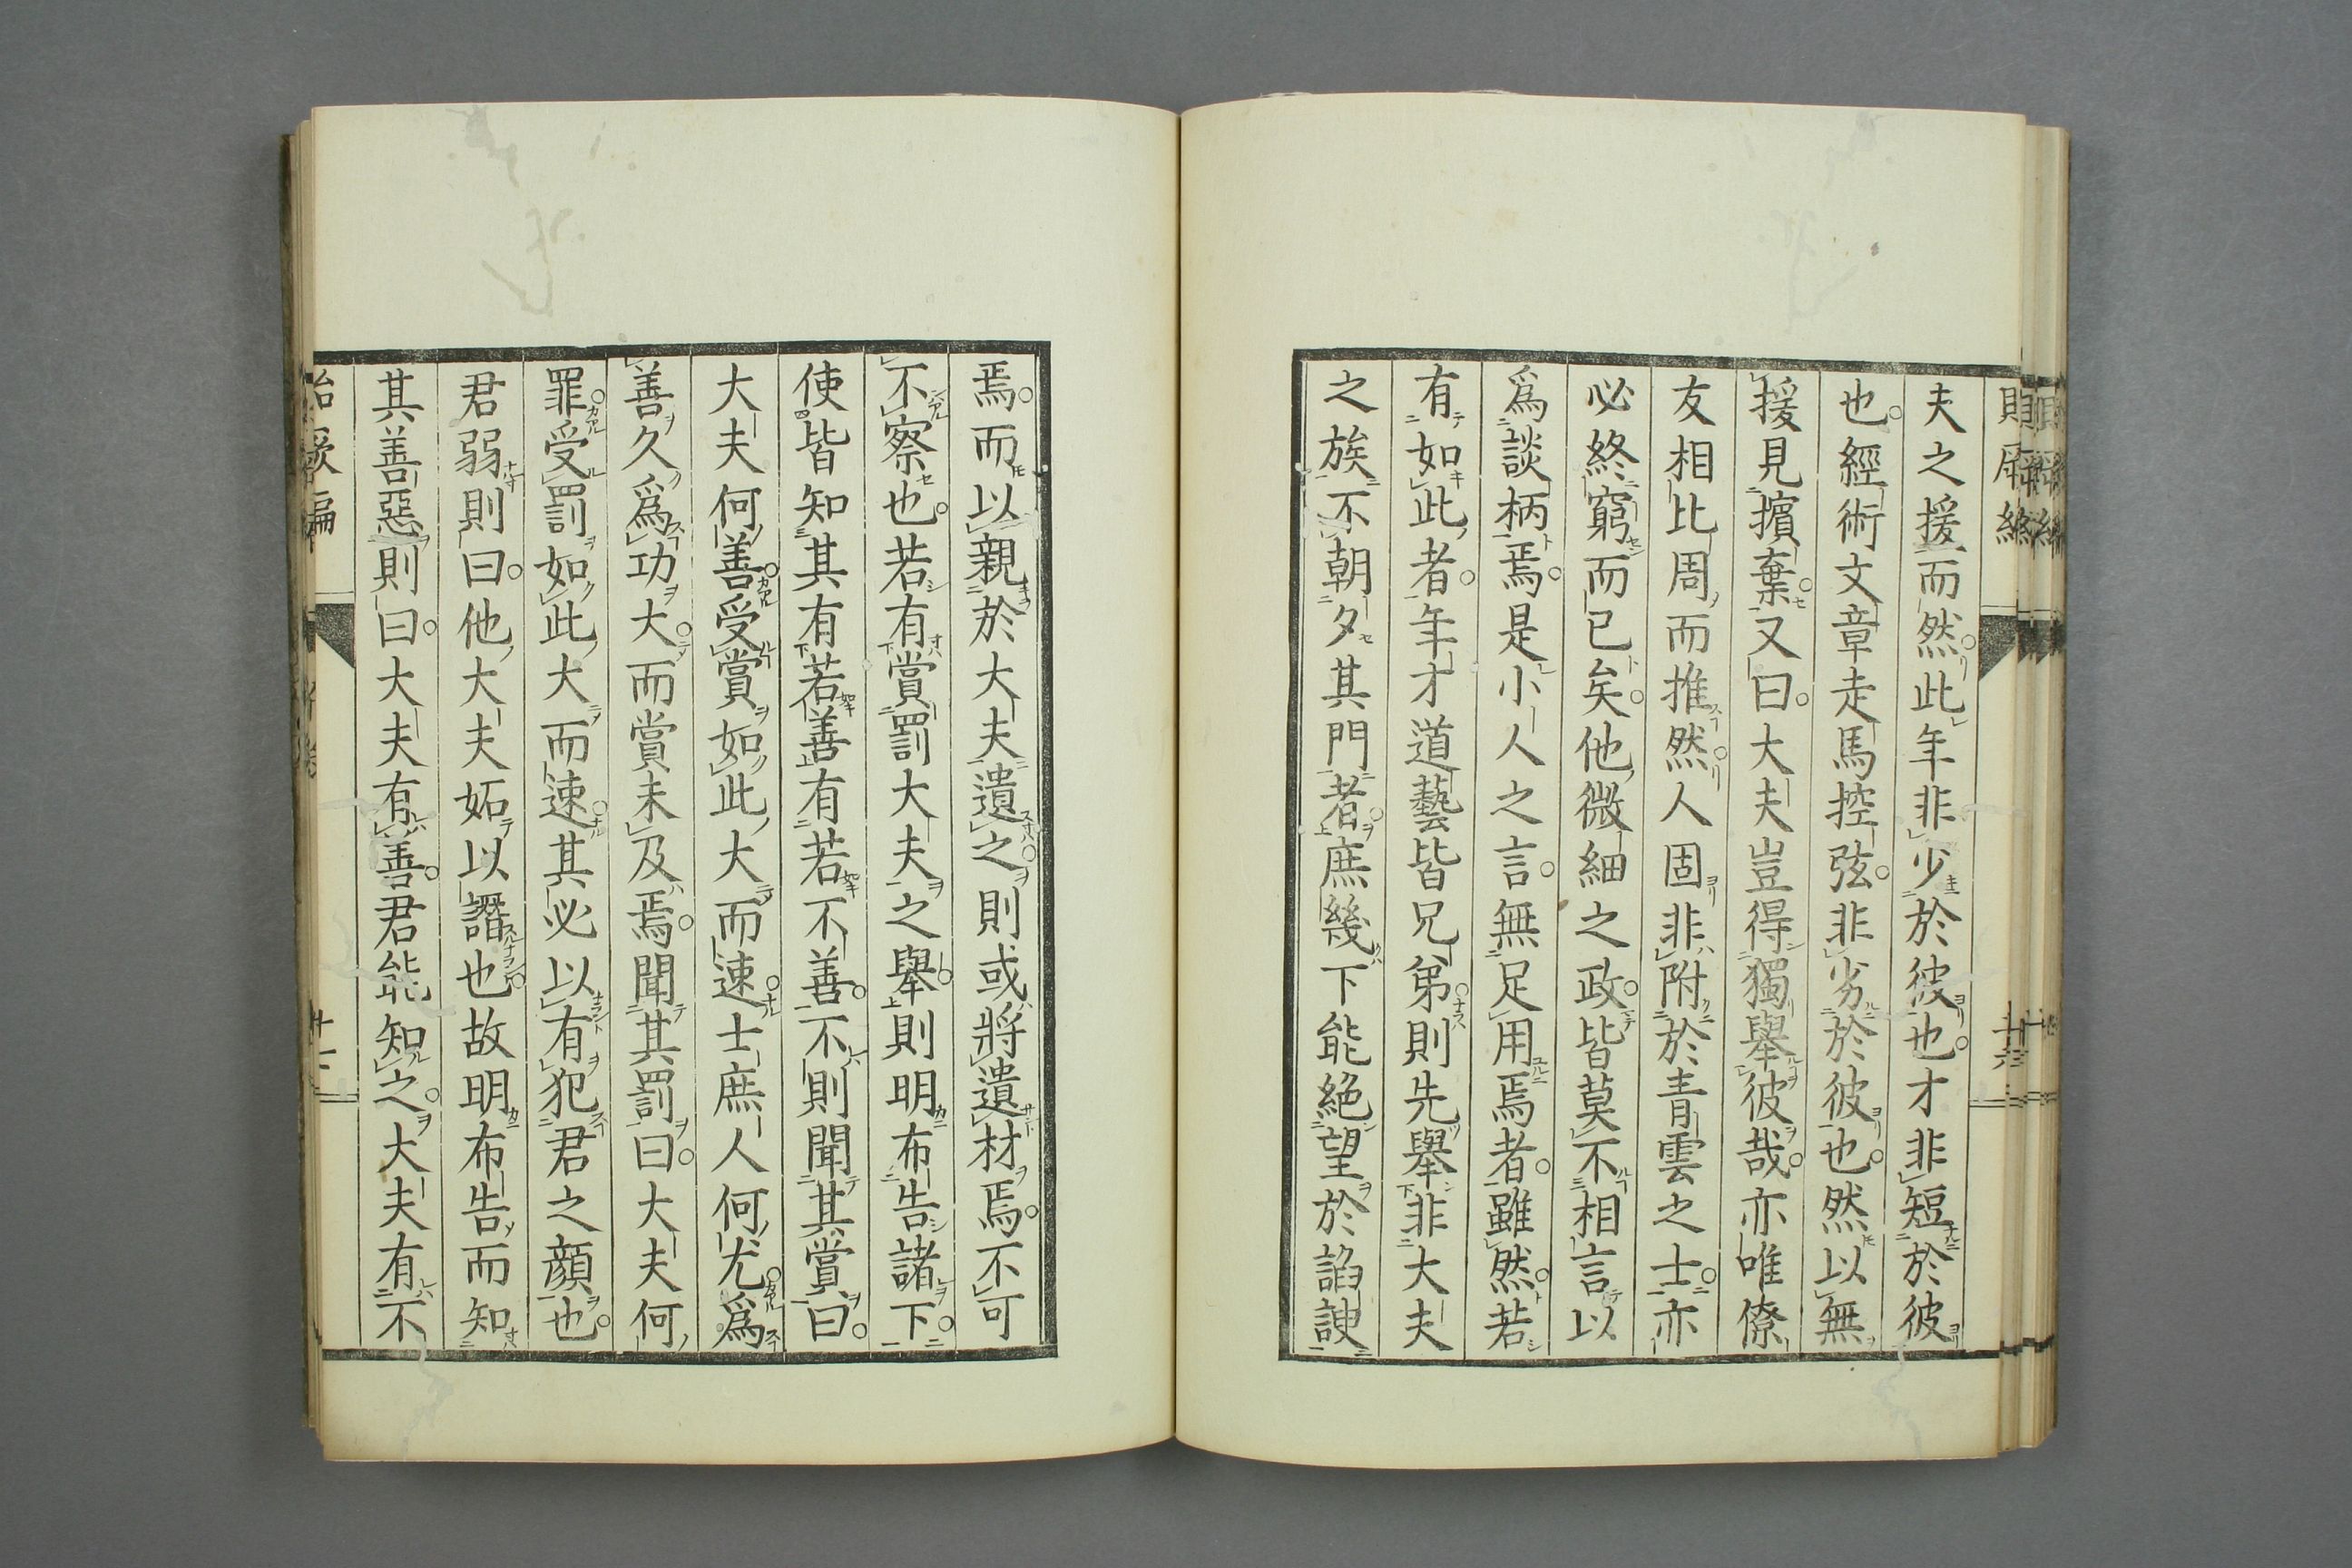 夫之援而然此年非少於彼也才非短於彼
也經術文章走馬控弦非劣於彼也然以無
援見擯棄又曰大夫豈得獨舉彼哉亦唯僚
友相比周而推然人固非附於青雲之士亦
必終窮而已矣他微細之政皆莫不相言以
爲談柄焉是小人之言無足用焉者雖然若
有如此者年才道藝皆兄弟則先舉非大夫
之族不朝夕其門者庶幾下能絶望於諂諛
焉而以親於大夫遺之則或將遺材焉不可
不察也若有賞罰大夫之舉則明布告諸下
使皆知其有若善有若不善不則聞其賞曰
大夫何善受賞如此大而速士庶人何尤爲
善久爲功大而賞未及焉聞其罰曰大夫何
罪受罰如此大而速其必以有犯君之顔也
君弱則曰他大夫妬以譖也故明布告而知
其善惡則曰大夫有善君能知之大夫有不